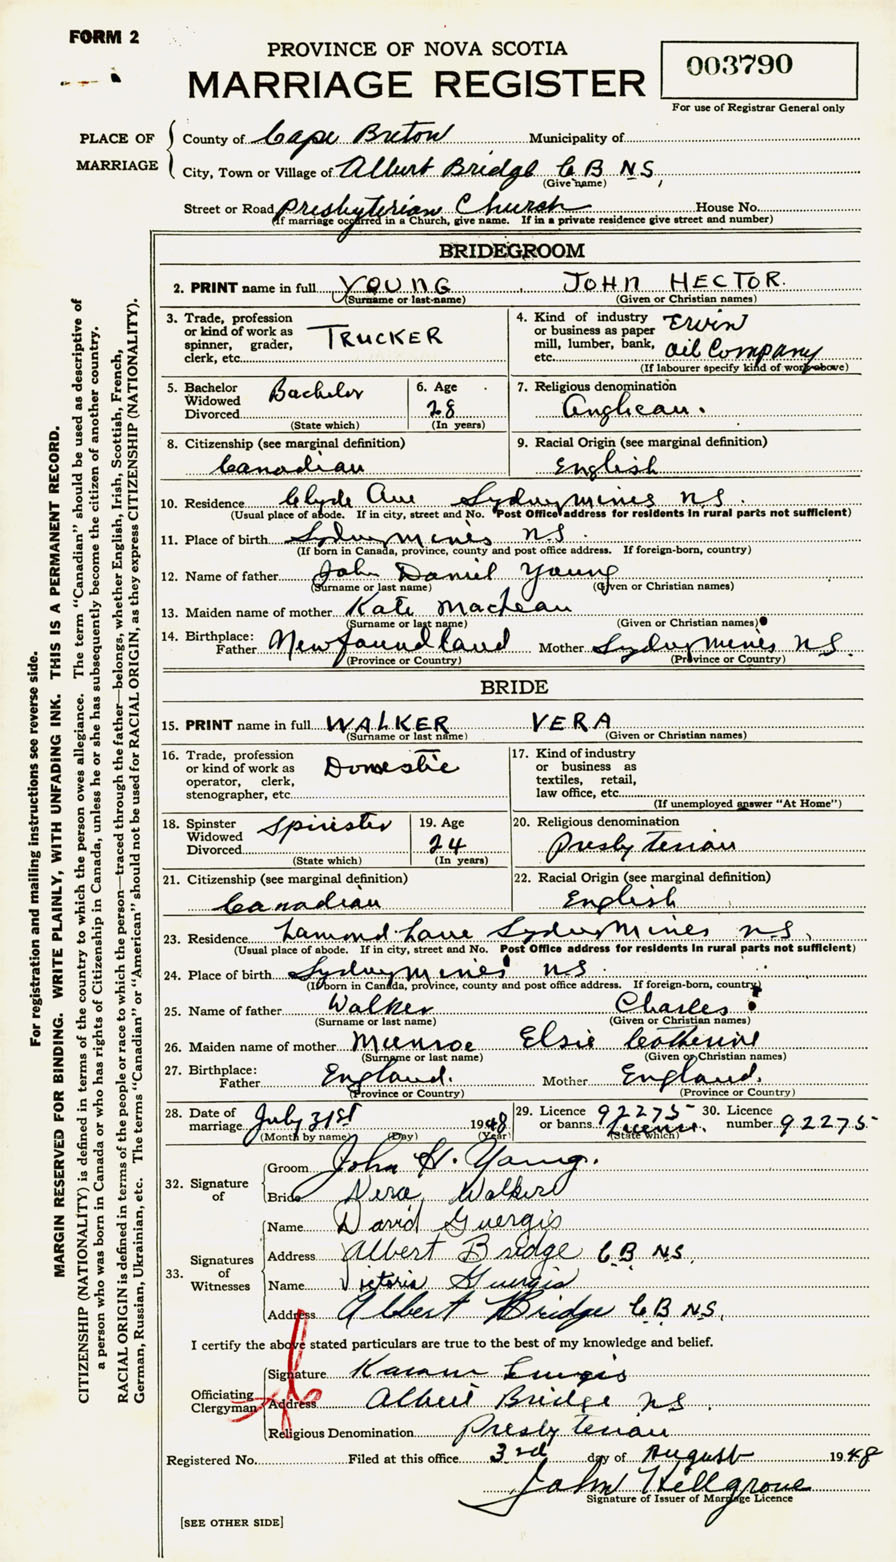 FORM 2
PROVINCE OF NOVA SCOTIA
MARRIAGE REGISTER
003790
For use of Registrar General only
PLACE OF MARRIAGE
County of Cape Breton Municipality of
City, Town or Village of Albert Bridge C B N S,
(Give name)
Street or Road Presbyterian Church House No.
(If marriage occurred in a Church, give name. If in a private residence give street and number)
BRIDEGROOM
2. PRINT name in full YOUNG, JOHN HECTOR.
(Surname or last name) (Given or Christian names)
3. Trade, profession or kind of work as spinner, grader, clerk, etc. TRUCKER
4. Kind of industry or business as paper mill, lumber, bank, etc. Ervin Oil Company
(If labourer specify kind of work above)
5. Bachelor Widowed Divorced Bachelor
(State which)
6. Age 28
(In years)
7. Religious denomination Anglican.
8. Citizenship (see marginal definition) Canadian
9. Racial Origin (see marginal definition) English
10. Residence Clyde Ave Sydney Mines N.S.
(Usual place of abode. If in city, street and No. Post Office address for residents in rural parts not sufficient)
11. Place of birth Sydney Mines N.S.
(If born in Canada, province, county and post office address. If foreign-born, country)
12. Name of father John Daniel Young
(Surname or last name) (Given or Christian names)
13. Maiden name of mother Kate MacLean
(Surname or last name) (Given or Christian names)
14. Birthplace: Father Newfoundland Mother Sydney Mines N.S.
(Province or Country) (Province or Country)
BRIDE
15. PRINT name in full WALKER VERA
(Surname or last name) (Given or Christian names)
16. Trade, profession or kind of work as operator, clerk, stenographer, etc. Domestic
17. Kind of industry or business as textiles, retail, law office, etc.
(If unemployed answer "At Home")
18. Spinster Widowed Divorced Spinster
(State which)
19. Age 24
(In years)
20. Religious denomination Presbyterian
21. Citizenship (see marginal definition) Canadian
22. Racial Origin (see marginal definition) English
23. Residence Lamond Lane Sydney Mines N.S.
(Usual place of abode. If in city, street and No. Post Office address for residents in rural parts not sufficient)
24. Place of birth Sydney Mines N.S.
(If born in Canada, province, county and post office address. If foreign-born, country)
25. Name of father Walker Charles
(Surname or last name) (Given or Christian names)
26. Maiden name of mother Munroe Elsie Catherine
(Surname or last name) (Given or Christian names)
27. Birthplace: Father England. Mother England.
(Province or Country) (Province or Country)
28. Date of marriage July 31st 1948
(Month by name) (Day) (Year)
29. Licence or banns 92275 Licence.
(State which)
30. Licence number 92275
32. Signature of
Groom John H. Young.
Bride Vera Walker
33. Signatures of Witnesses
Name David Guergis
Address Albert Bridge C.B N.S.
Name Victoria Guergis
Address Albert Bridge C B N.S.
I certify the above stated particulars are true to the best of my knowledge and belief.
Officiating Clergyman
Signature
Address Albert Bridge N S
Religious Denomination Presbyterian
Registered No. Filed at this office 3rd day of August 1948
John Hillgrove
Signature of Issuer of Marriage Licence
[SEE OTHER SIDE]
For registration and mailing instructions see reverse side.
MARGIN RESERVED FOR BINDING. WRITE PLAINLY, WITH UNFADING INK. THIS IS A PERMANENT RECORD.
CITIZENSHIP (NATIONALITY) is defined in terms of the country to which the person owes allegiance. The term "Canadian" should be used as descriptive of
a person who was born in Canada or who has rights of Citizenship in Canada, unless he or she has subsequently become the citizen of another country.
RACIAL ORIGIN is defined in terms of the people or race to which the person—traced through the father—belongs, whether English, Irish, Scottish, French,
German, Russian, Ukrainian, etc. The terms "Canadian" or "American" should not be used for RACIAL ORIGIN, as they express CITIZENSHIP (NATIONALITY).